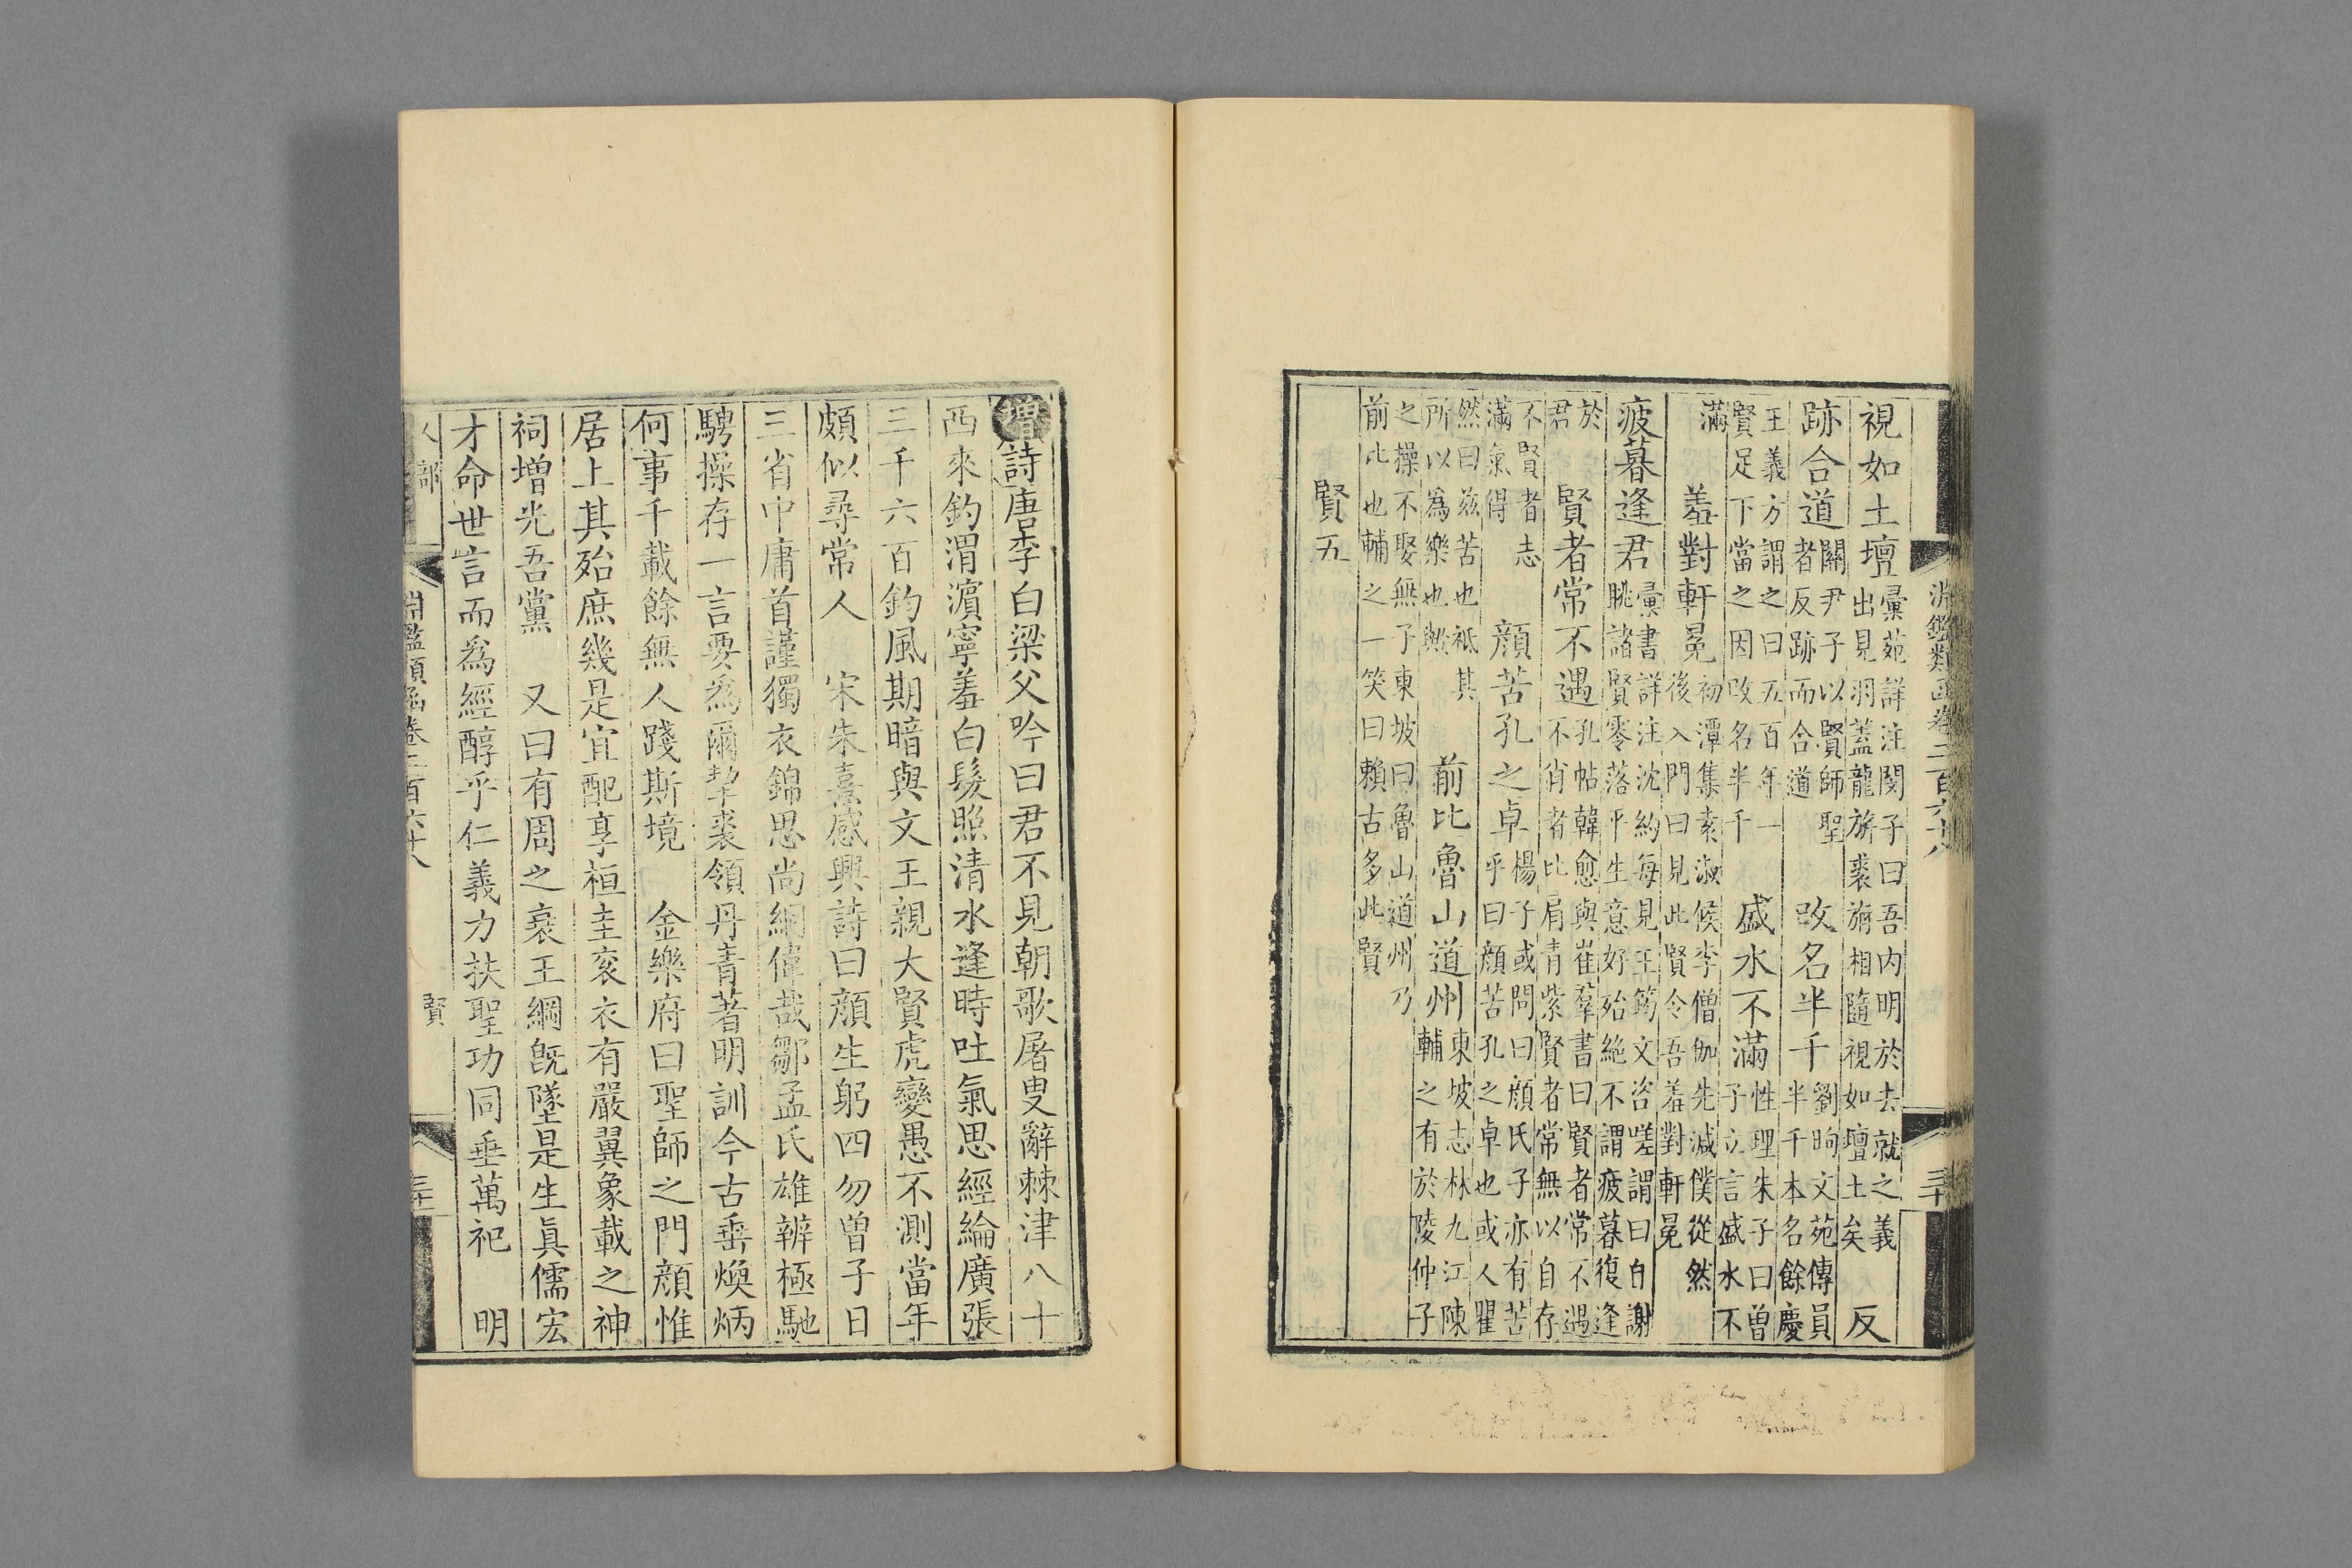 淵鑑類函卷二百六十八 三十
視如土壇彙苑詳注閔子曰吾内明於去就之義出見羽蓋龍旂裘旃相隨視如壇土矣 反
跡合道關尹子以賢師聖者反跡而合道 改名半千劉昫文苑傳員半千本名餘慶
王義方謂之曰五百年一賢足下當之因改名半千 盛水不滿性理朱子曰曾子立言盛水不
滿 羞對軒冕初潭集素淑候李僧伽先減僕從然後入門曰見此賢令吾羞對軒冕
疲暮逢君彙書詳注沈約每見王筠文咨嗟謂曰自謝朓諸賢零落平生意好殆絶不謂疲暮復逢
於君 賢者常不遇孔帖韓愈與崔羣書曰賢者常不遇不肖者比肩青紫賢者常無以自存
不賢者志滿氣得 顔苦孔之卓楊子或問曰顔氏子亦有苦乎曰顔苦孔之卓也或人瞿
然曰兹苦也袛其所以爲樂也歟 前比魯山道州東坡志林九江陳輔之有於陵仲子
之操不娶無子東坡曰魯山道州乃前比也輔之一笑曰賴古多此賢
賢五
增詩唐李白梁父吟曰君不見朝歌屠叟辭棘津八十
西來釣渭濵寧羞白髮照清水逢時吐氣思經綸廣張
三千六百釣風期暗與文王親大賢虎變愚不測當年
頗似尋常人 宋朱熹感興詩曰顔生躬四勿曾子日
三省中庸首謹獨衣錦思尚絅偉哉鄒孟氏雄辨極馳
騁操存一言要爲爾挈裘領丹青著明訓今古垂煥炳
何事千載餘無人踐斯境 金樂府曰聖師之門顔惟
居上其殆庶幾是宜配享桓圭衮衣有嚴翼象載之神
祠增光吾黨 又曰有周之衰王綱旣墜是生眞儒宏
才命世言而爲經醇乎仁義力扶聖功同垂萬祀 明
人部 淵鑑類函卷二百六十八 賢 三十